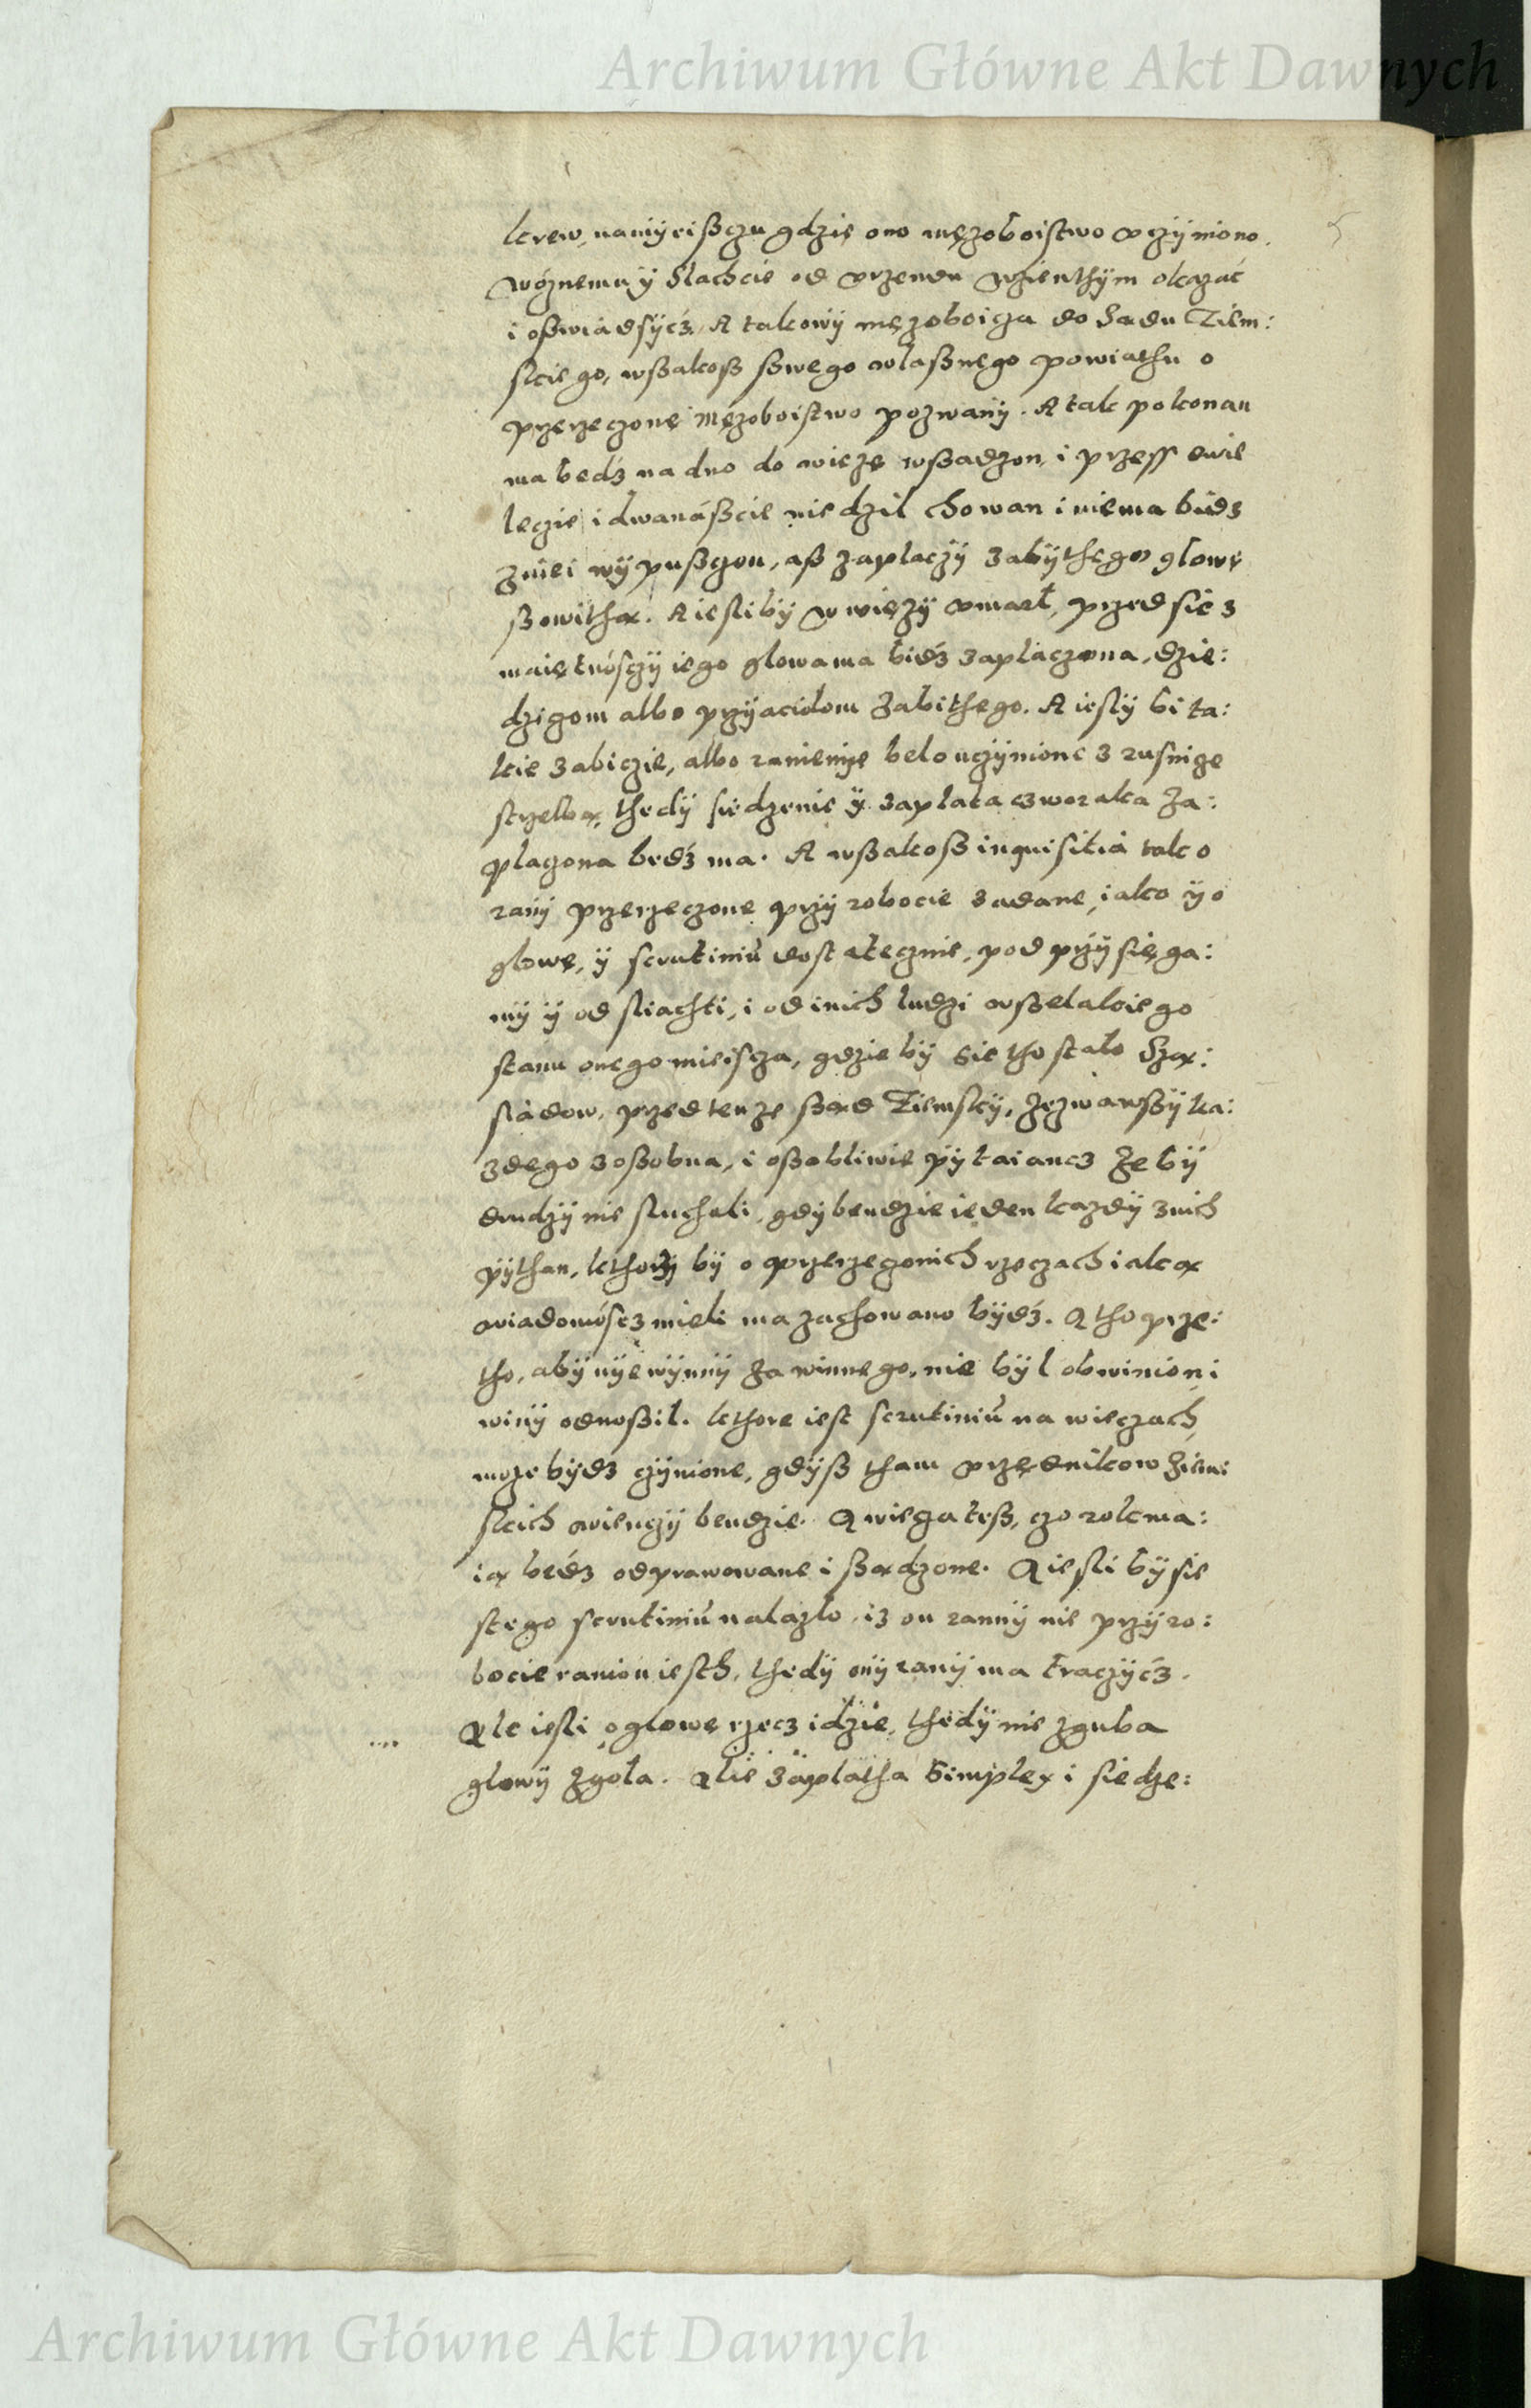 Archiwum Główne Akt Dawnych
5
krew, na myeisßczu gdzie ono męzoboistwo uczÿniono.
wóznemu ÿ slachcie od urzendu wzienthÿm okazać
i oßwiadsÿćz. A takowÿ męzoboicza do Sadu Ziem:
skiego, wßakoß ßwego wlaßnego powiathu o
przerzeczone męzoboistwo pozwanÿ. A tak pokonan
ma bedź na dno do wieze wßadzon, i przess dwie
leczie i dwanáßcie niedzil chowan i niema bidz
zniei wÿpußczon, aß zaplaczÿ zabÿthego glowę
ßowitha. A iesli bÿ w wiezÿ umarł, przed sie z
maiętnósczÿ iego glowa ma bidź zaplaczona, dzie:
dzigom albo przÿacielom zabithego. A ieslÿ bi ta:
kie zabiczie, albo ranienie belo uczÿnione z rusnige
strzelba, thedÿ siedzenie ÿ zaplata czworaka za:
placzona bedź ma. A wßakoß inquisitia tak o
ranÿ przerzeczone przÿ robocie zadane, iako ÿ o
glowę, ÿ scrutiniũ dostatecznie, pod przÿsięga:
mÿ ÿ od sliachti, i od inich ludzi wßelakiego
stanu onego mieiscza, gdzie bÿ sie tho stalo Sza:
siadow, przed tenze ßad Ziemskÿ, zezwawßÿ ka:
zdego zoßobna, i oßobliwie pÿtaiancz ze bÿ
drudzÿ nie sluchali, gdÿ bendzie ieden kazdÿ znich
pÿthan, kthorzÿ bÿ o przerzeczonich rzeczach iaka
wiadomóscz mieli ma zachowano bÿdź. A tho prze:
tho, abÿ nÿewÿnnÿ za winnego, nie bÿl obwinion i
winÿ odnoßil. kthore iest scrutiniũ na wieczach
moze bÿdz czÿnione, gdÿß tham urzednikow ziem:
skich wienczÿ bendzie. A wiecza teß, czo rok ma:
ia bedź odprawowane i ßadzone. A iesli bÿ sie
stego scrutiniũ nalazlo, iz on rannÿ nie przÿ ro:
bocie ranion iesth, thedÿ onÿ ranÿ ma traczÿćz.
Ale iesli o glowe rzecz idzie, thedÿ nie zguba
glowÿ zgoła. Alie zaplatha simplex i siedze:
Archiwum Główne Akt Dawnych